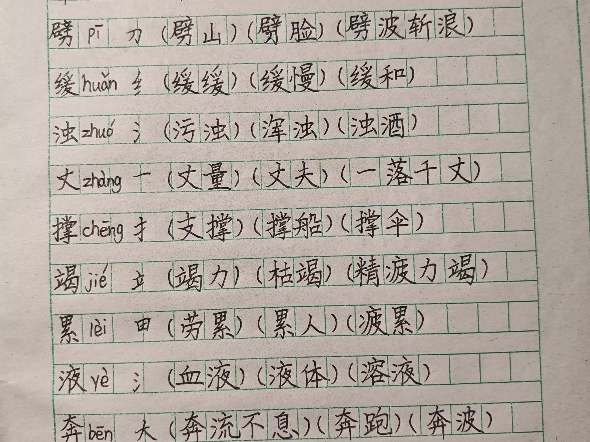 劈 pī 刀 (劈山)(劈脸)(劈波斩浪)
缓 huǎn 纟 (缓缓)(缓慢)(缓和)
浊 zhuó 氵 (污浊)(浑浊)(浊酒)
丈 zhàng 一 (丈量)(丈夫)(一落千丈)
撑 chēng 扌 (支撑)(撑船)(撑伞)
竭 jié 立 (竭力)(枯竭)(精疲力竭)
累 lèi 田 (劳累)(累人)(疲累)
液 yè 氵 (血液)(液体)(溶液)
奔 bēn 大 (奔流不息)(奔跑)(奔波)